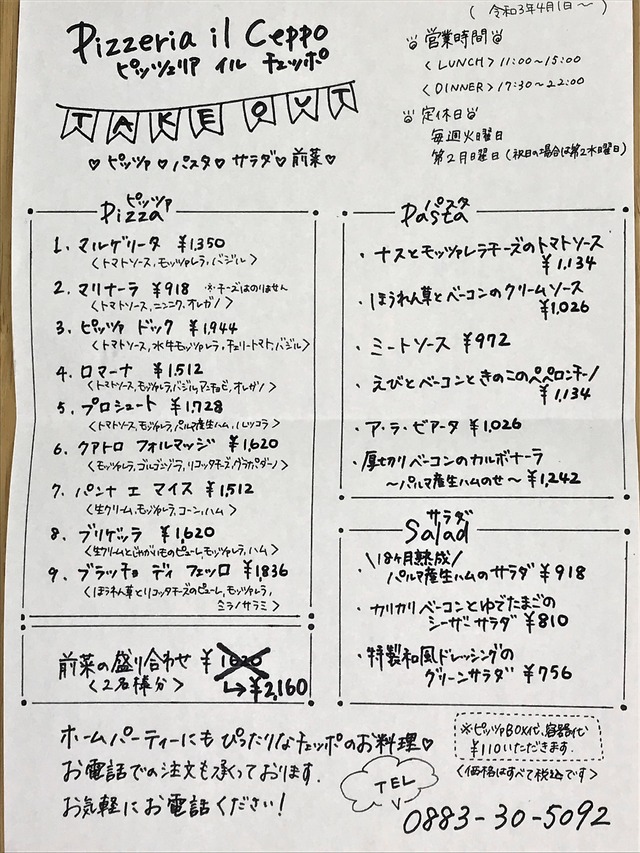 (令和3年4月1日〜)
Pizzeria il Ceppo
ピッツェリア イル チェッポ
TAKE OUT
♡ピッツァ♡パスタ♡サラダ♡前菜♡
営業時間
〈LUNCH〉11:00〜15:00
〈DINNER〉17:30〜22:00
定休日
毎週火曜日
第2月曜日(祝日の場合は第2水曜日)
ピッツァ
Pizza
1. マルゲリータ ¥1,350
〈トマトソース、モッツァレラ、バジル〉
2. マリナーラ ¥918 ※チーズはのりません
〈トマトソース、ニンニク、オレガノ〉
3. ピッツァ ドック ¥1,944
〈トマトソース、水牛モッツァレラ、チェリートマト、バジル〉
4. ロマーナ ¥1,512
〈トマトソース、モッツァレラ、バジル、アンチョビ、オレガノ〉
5. プロシュート ¥1,728
〈トマトソース、モッツァレラ、パルマ産生ハム、ルッコラ〉
6. クアトロ フォルマッジ ¥1,620
〈モッツァレラ、ゴルゴンゾーラ、リコッタチーズ、グラナパダーノ〉
7. パンナ エ マイス ¥1,512
〈生クリーム、モッツァレラ、コーン、ハム〉
8. ブリゲッラ ¥1,620
〈生クリームとじゃがいものピューレ、モッツァレラ、ハム〉
9. ブラッチョ ディ フェッロ ¥1,836
〈ほうれん草とリコッタチーズのピューレ、モッツァレラ、
ミラノサラミ〉
前菜の盛り合わせ ¥1620
〈2名様分〉 ↳¥2,160
パスタ
Pasta
・ナスとモッツァレラチーズのトマトソース
¥1,134
・ほうれん草とベーコンのクリームソース
¥1,026
・ミートソース ¥972
・えびとベーコンときのこのペペロンチーノ
¥1,134
・ア・ラ・ビアータ ¥1,026
・厚切りベーコンのカルボナーラ
〜パルマ産生ハムのせ〜 ¥1,242
サラダ
Salad
\18ヶ月熟成/
・パルマ産生ハムのサラダ ¥918
・カリカリベーコンとゆでたまごの
シーザーサラダ ¥810
・特製和風ドレッシングの
グリーンサラダ ¥756
ホームパーティーにもぴったりなチェッポのお料理♡
お電話での注文も承っております.
お気軽にお電話ください!
※ピッツァBOX代、容器代
¥110いただきます.
〈価格はすべて税込です〉
TEL
0883-30-5092